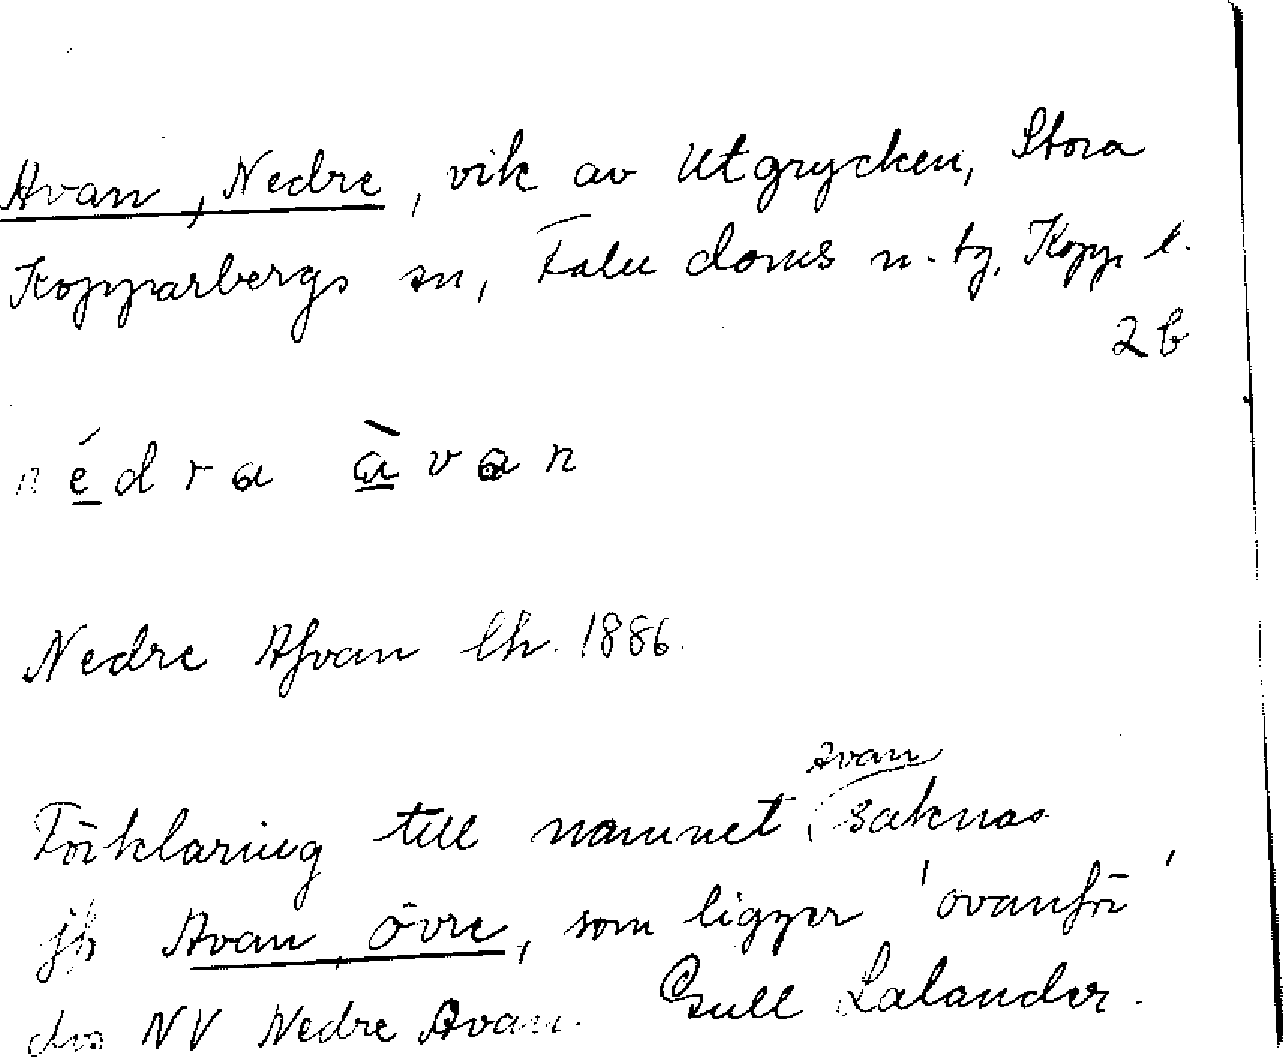 Avan, Nedre, vik av Utgrycken, Stora
Kopparbergs sn, Falu doms n. tg, Kopp. l.
2 b
nédra àvan
Nedre Afvan lh. 1886.
Förklaring till namnet Avan saknas
jfr Avan, övre, som ligger 'ovanför'
dvs NV Nedre Avan. Gull Lalander.